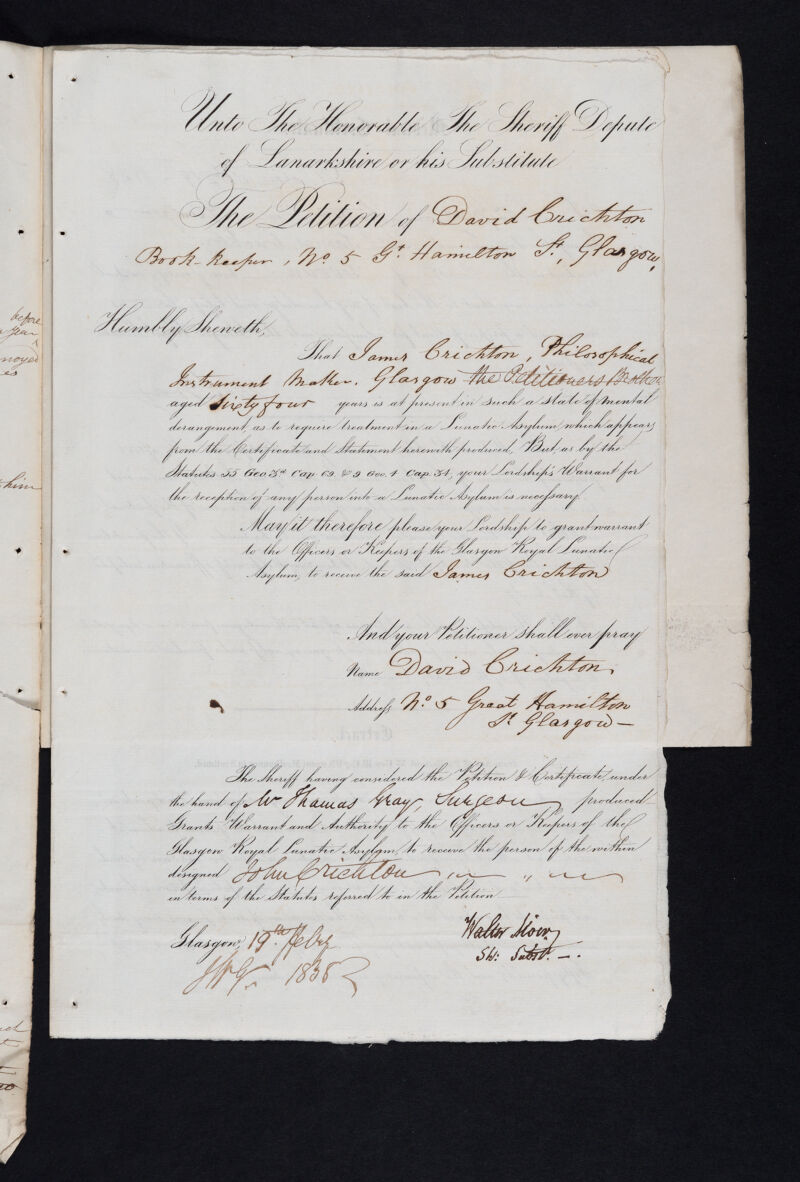 Unto The Honorable The Sheriff Depute
of Lanarkshire or his Substitute
The Petition of David Crichton
Book-keeper, No 5 Gt. Hamilton St, Glasgow,
Humbly Sheweth,
That James Crichton, Philosophical
Instrument Maker. Glasgow the Petitioners Brother
aged Sixty four years is at present in such a state of mental
derangement, as to require treatment in a Lunatic Asylum, which appears
from the Certificate and Statement herewith produced, But, as by the
Statutes 55 Geo. 3rd Cap. 69. & 9 Geo. 4 Cap. 34, your Lordship's Warrant for
the reception of any person into a Lunatic Asylum is necessary.
May it therefore please your Lordship to grant warrant
to the Officers or Keepers of the Glasgow Royal Lunatic
Asylum, to receive the said James Crichton
And your Petitioner shall ever pray
Name David Crichton,
Address No. 5 Great Hamilton
St. Glasgow—
The Sheriff having considered the Petition & Certificate, under
the hand of Mr Thomas Gray, Surgeon produced
Grants Warrant and Authority to the Officers or Keepers of the
Glasgow Royal Lunatic Asylum, to receive the person of the within
designed John Crichton
in terms of the Statutes referred to in the Petition
Glasgow, 19th Feby
1838
Walter Moir,
Sh: Subst. —.
before
year
him